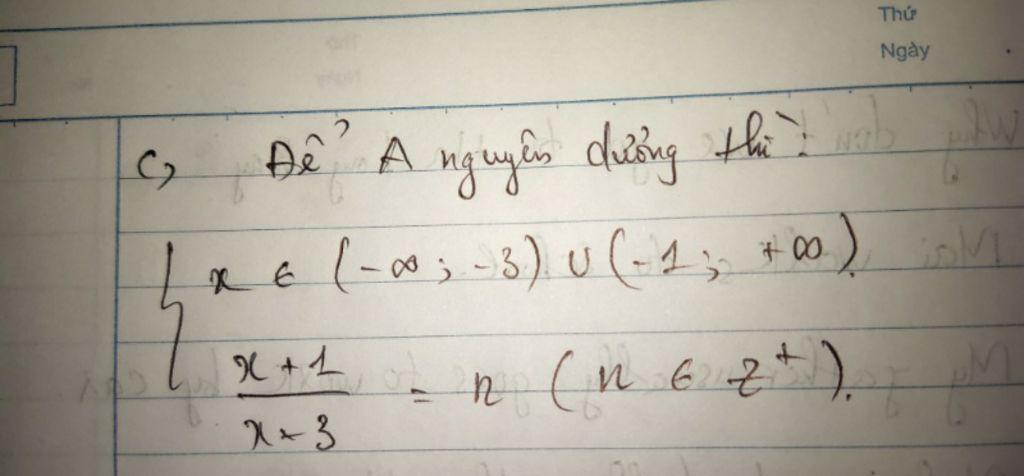 Thứ
Ngày
c, Để A nguyên dưỡng thì:
x ∈ (-∞; -3) ∪ (-1; +∞).
x + 1 / x - 3 = n (n ∈ Z⁺).